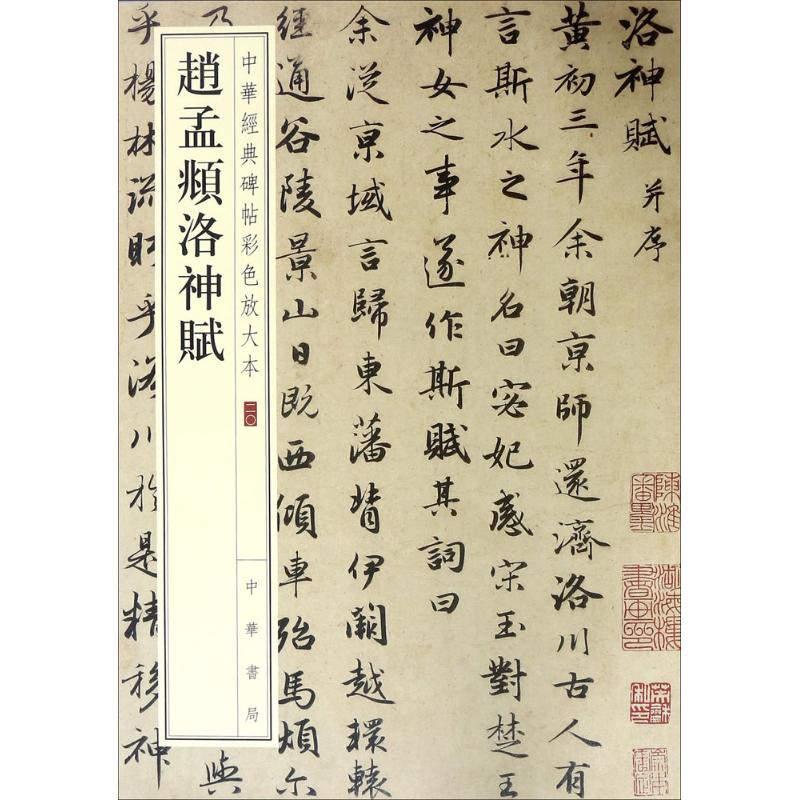 洛神賦 并序
黃初三年余朝京師還濟洛川古人有
言斯水之神名曰宓妃感宋玉對楚王
神女之事遂作斯賦其詞曰
余從京域言歸東藩背伊闕越轘轅
經通谷陵景山日既西傾車殆馬煩尔
乃
與
乎楊林流眄乎洛川於是精移神
中華經典碑帖彩色放大本 二〇
中華書局
趙孟頫洛神賦